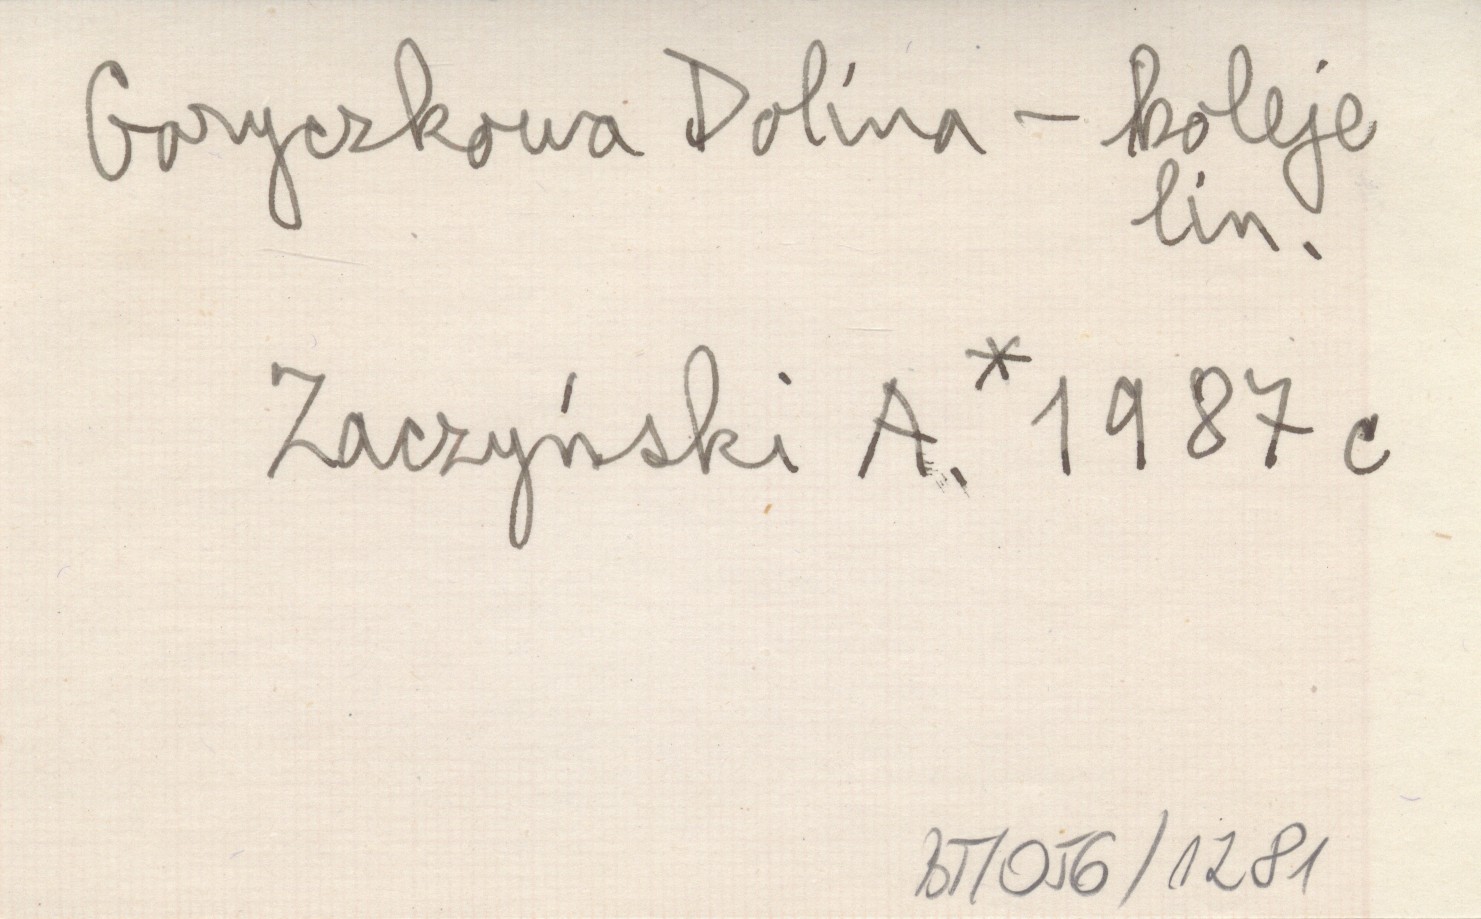 Goryczkowa Dolina – koleje
lin.
Zaczyński A.* 1987 c
BT/OJG/1281